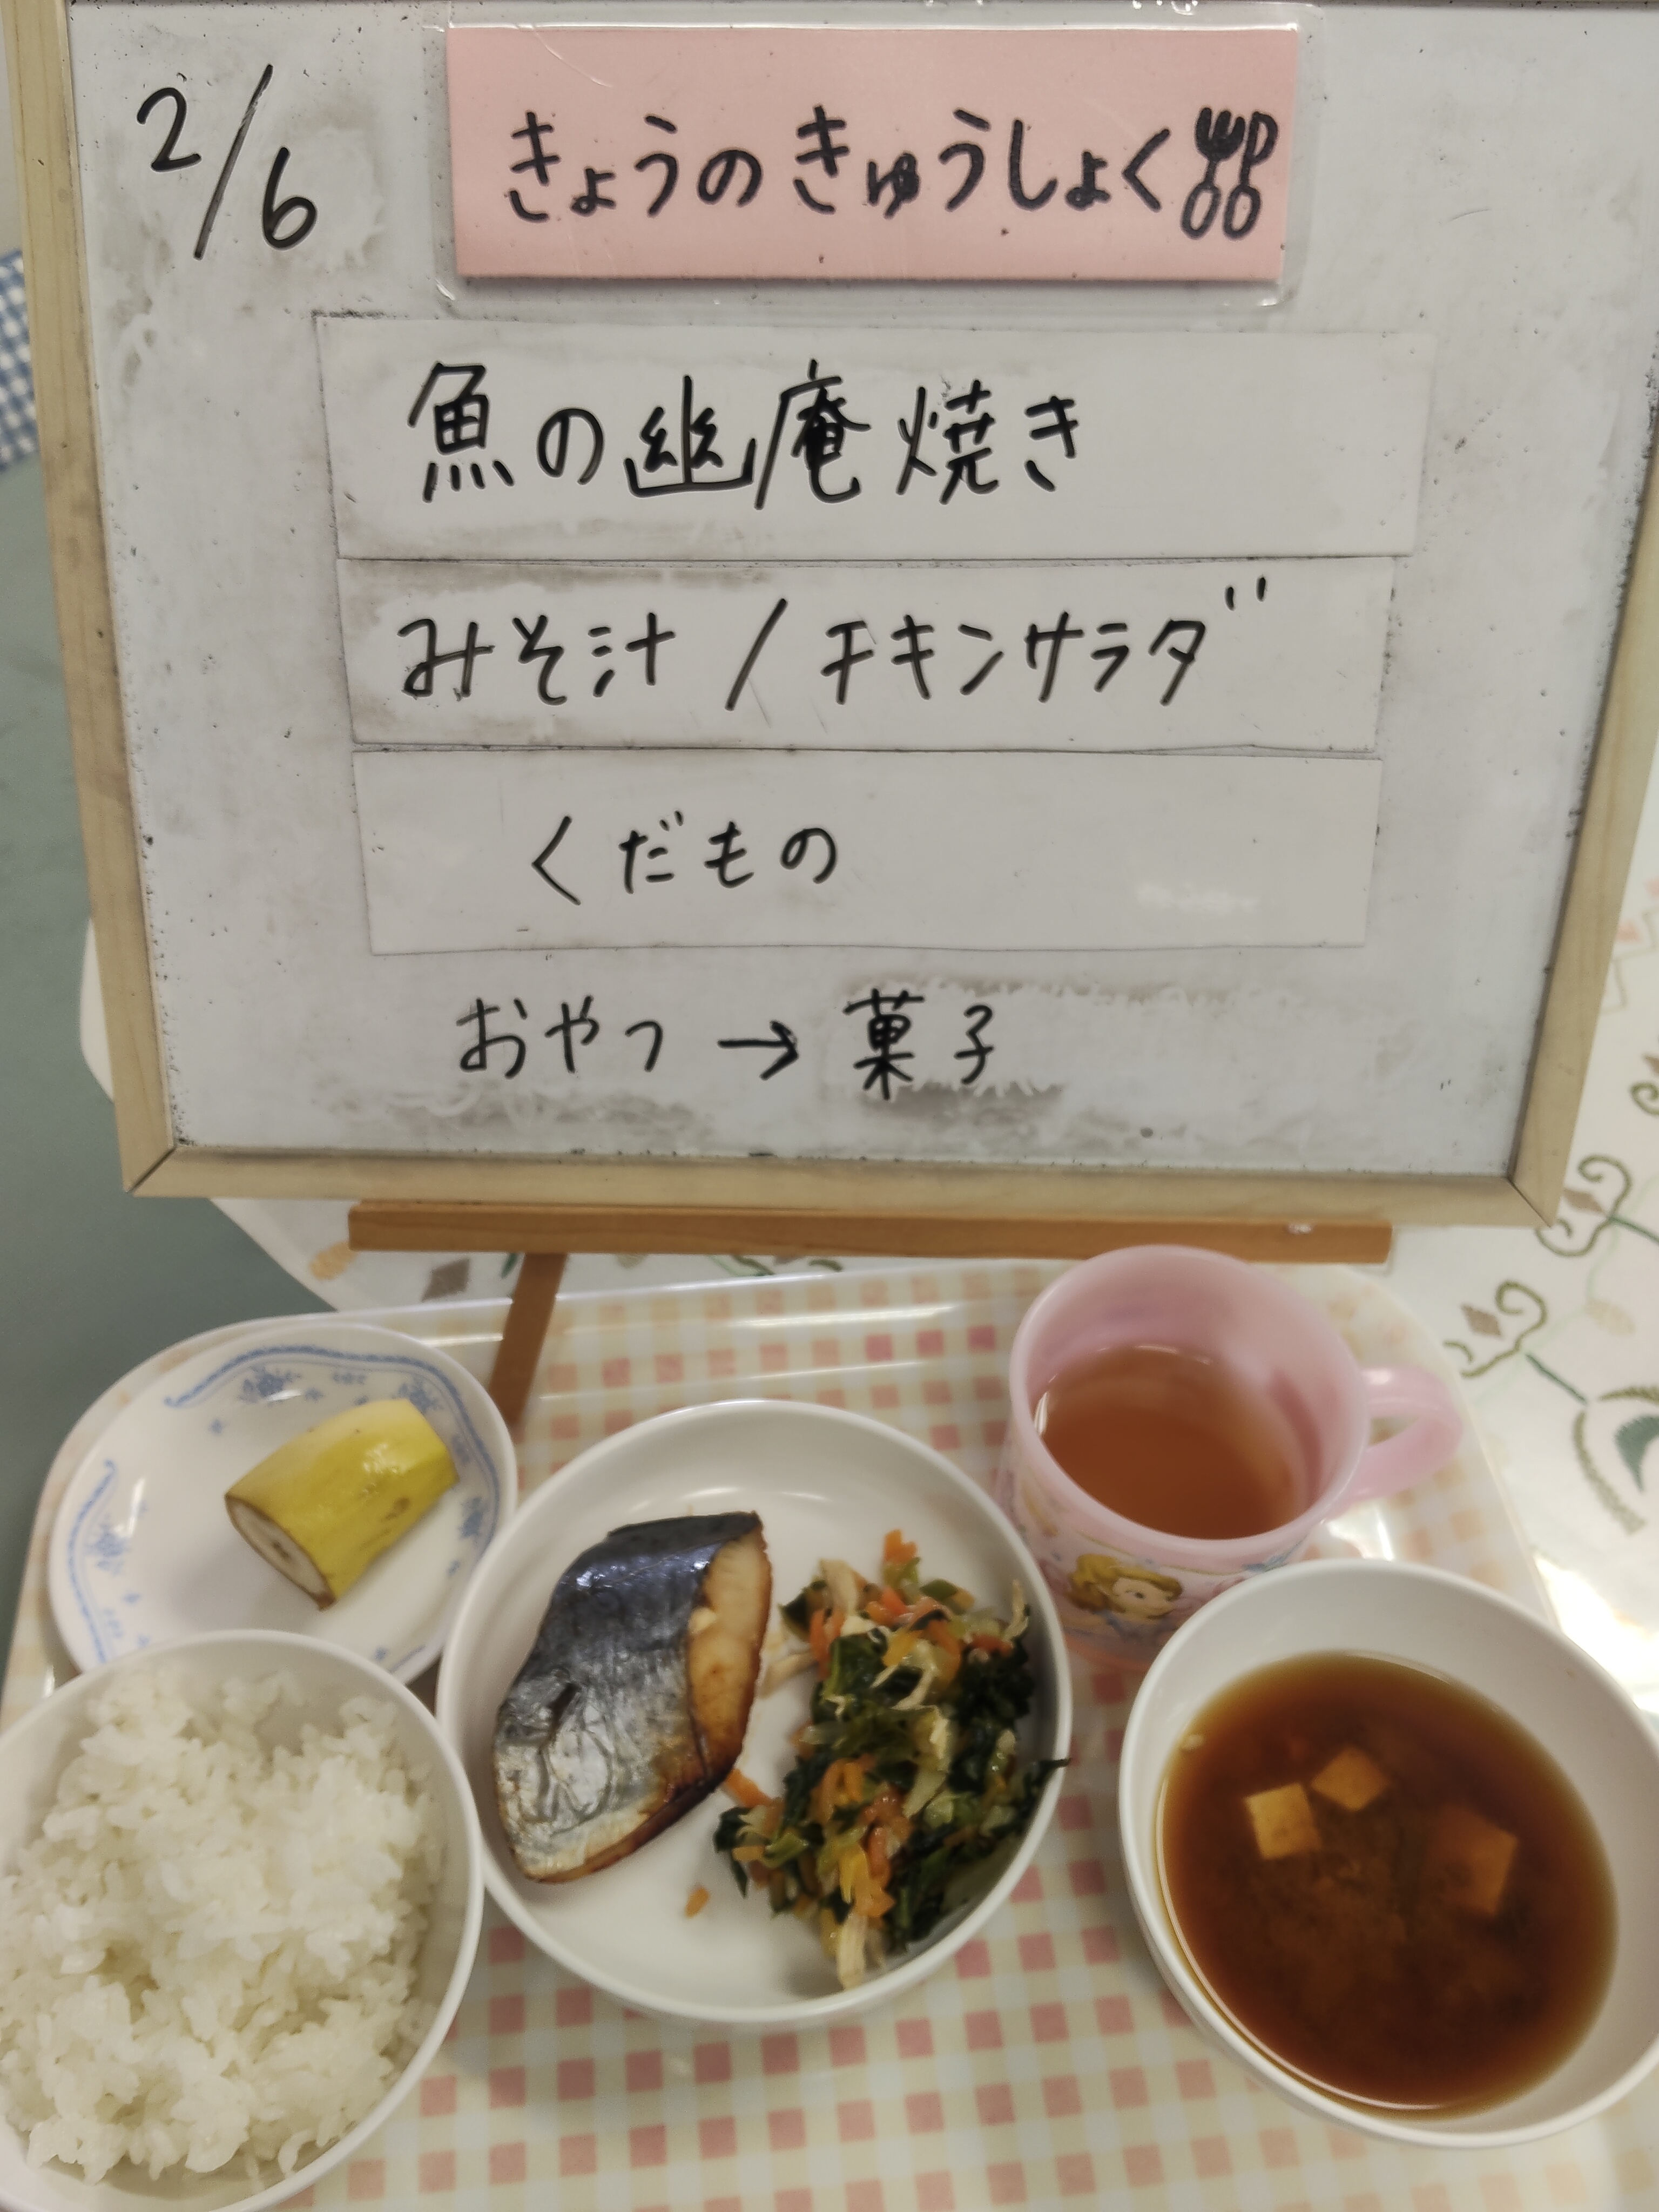 2/6
きょうのきゅうしょく
魚の幽庵焼き
みそ汁 / チキンサラダ
くだもの
おやつ → 菓子